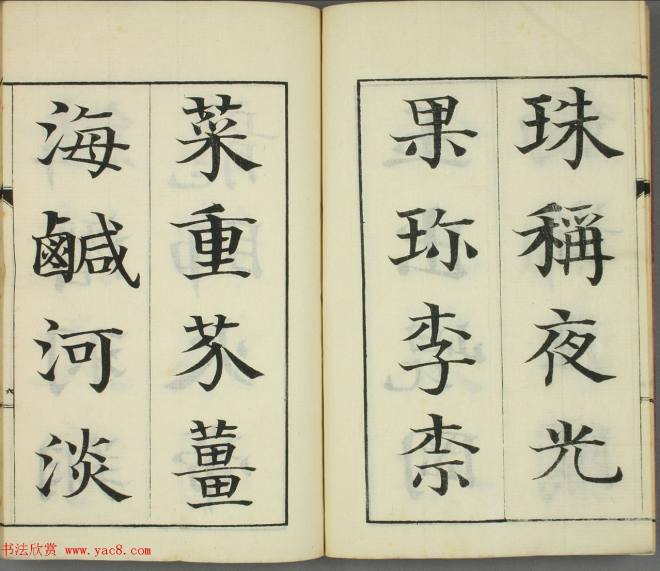 珠稱夜光
果珎李柰
菜重芥薑
海鹹河淡
书法欣赏 www.yac8.com